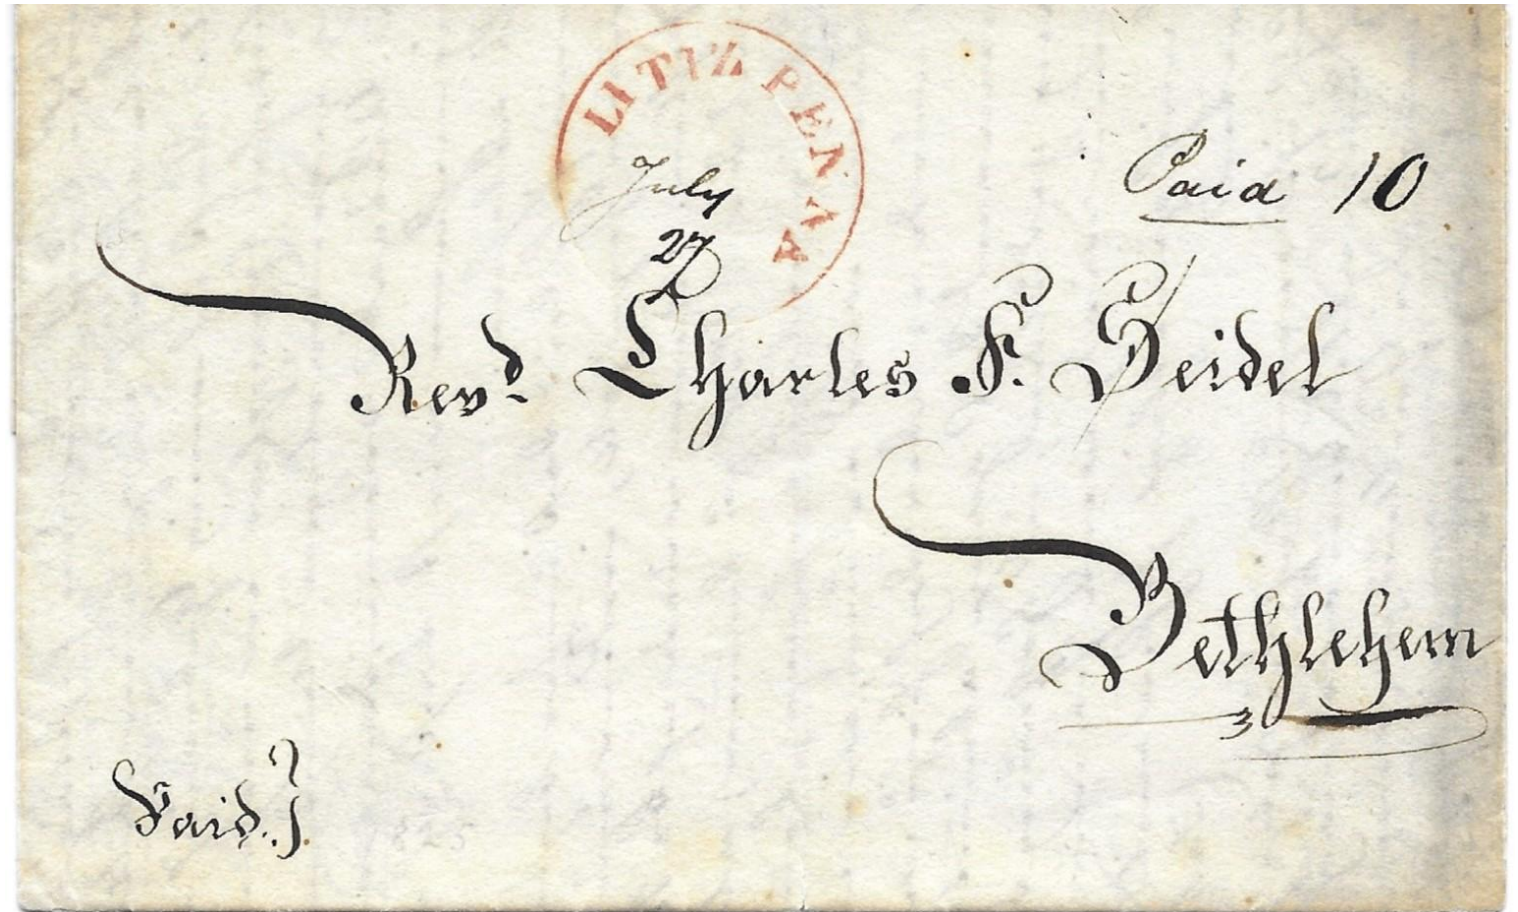 LITIZ PENNA
July
27
Paid 10
Revd. Charles F. Seidel
Bethlehem
Paid.